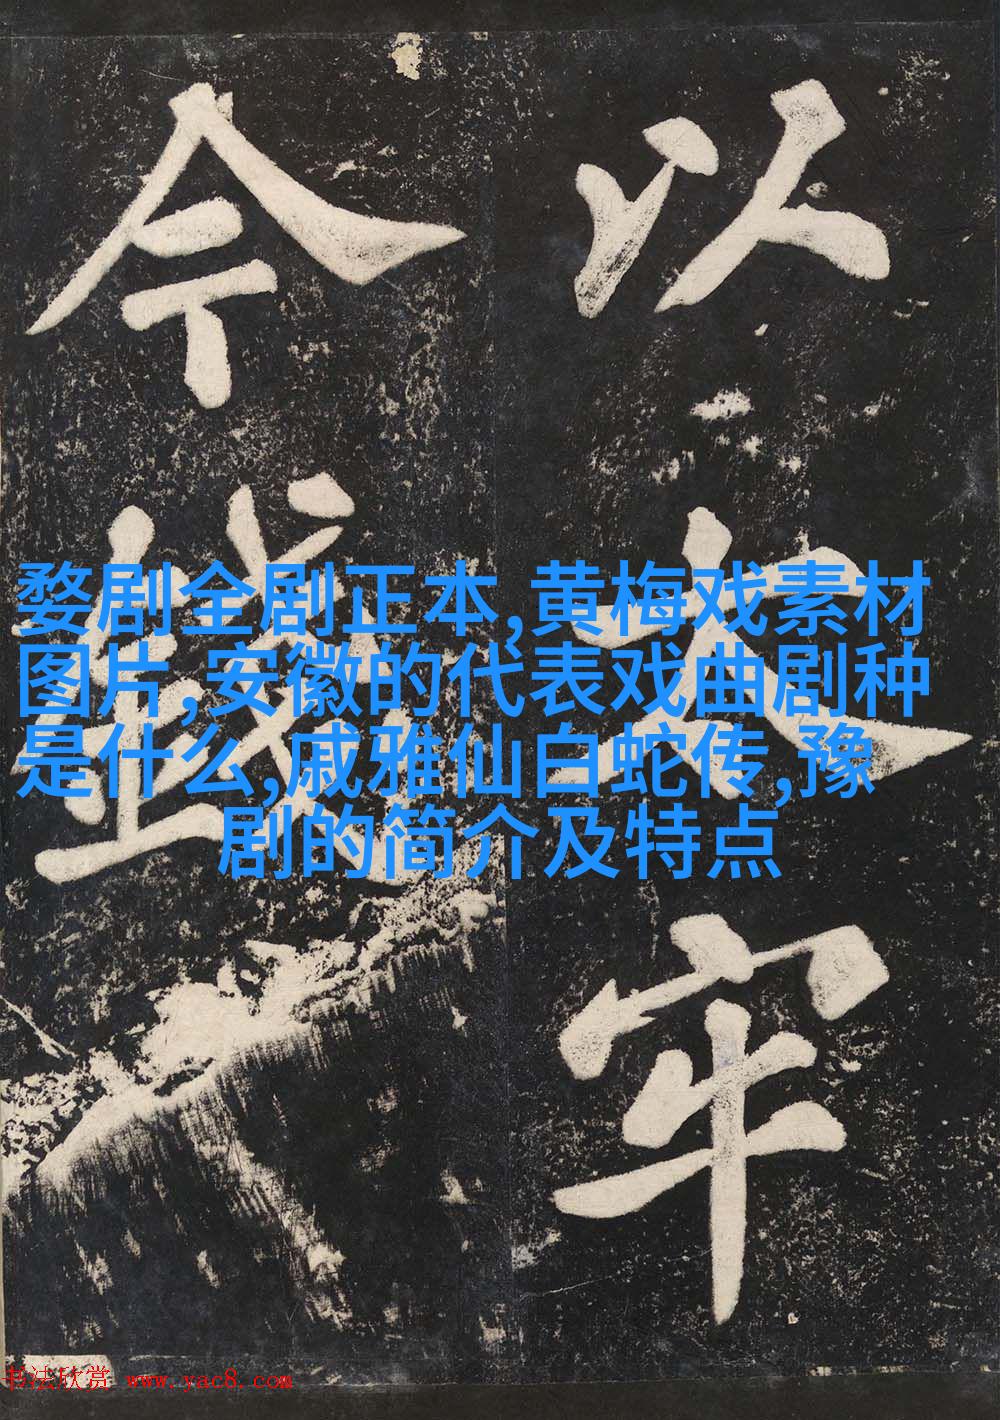 以牢
今
婺剧全剧正本,黄梅戏素材
图片,安徽的代表戏曲剧种
是什么,戚雅仙白蛇传,豫
剧的简介及特点
书法欣赏 www.yac8.com